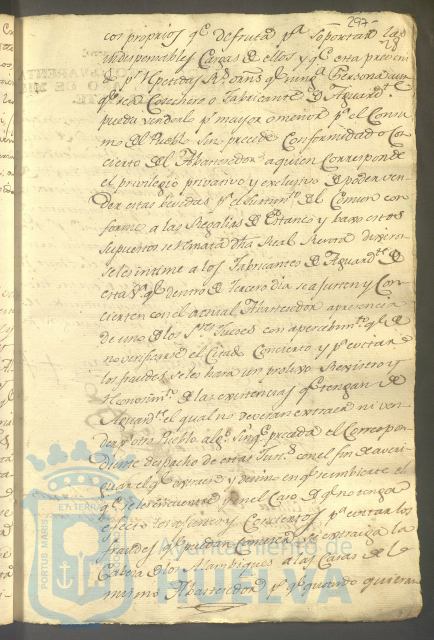 297
28
cos propios qe. defruta pa. soportar las
indispensables Cargas de ellos y qe. esta preveni
do pr. repetidas Rs. orns. qe. ningna. Persona aun
qe. sea Cosechero o Fabricante de Aguardte.
pueda venderlo pr. mayor o menor pa. el Consu
mo del Pueblo sin preceder Conformidad o Con
cierto del Abastecedor a quien corresponde
el privilegio privativo y exclusivo de poder ven
der estas bevidas pa. el surtimto. del Comun con
forme a las Regalias de Estanco y baxo estos
supuestos
se les intime a los Fabricantes de Aguardte. de
esta Va. qe. dentro de tercero dia se ajusten y Con
cierten con el actual Abastecedor a presencia
de uno de los Sres. Jueces con apercebimto. qe. de
no verificarse el Citado Concierto y pa. evitar
los fraudes se les hara un prolixo Registro y
reconosimto. de las existencias qe. tengan de
Aguardte. el qual no deveran extraer ni ven
der pa. otro Pueblo algo. sin qe. preceda el Correspon
diente despacho de estas Justs. con el fin de averi
guar el qe.
qe. se les encuentre y en el Caso de qe. no tenga
efecto
fraudes qe. puedan cometerse se extraiga la
Cabeza de los Alambiques a las Casas de el
mismo Abastecedor pa. qe. quando quieran
PORTUS MARIS
Ayuntamiento de
HUELVA